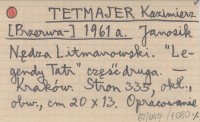 TETMAJER Kazimierz
[Przerwa-] 1961 a. Janosik
Nędza Litmanowski. "Le-
gendy Tatr" część druga. –
Kraków. Stron 335, okł.,
obw., cm 20 x 13. Opracowanie